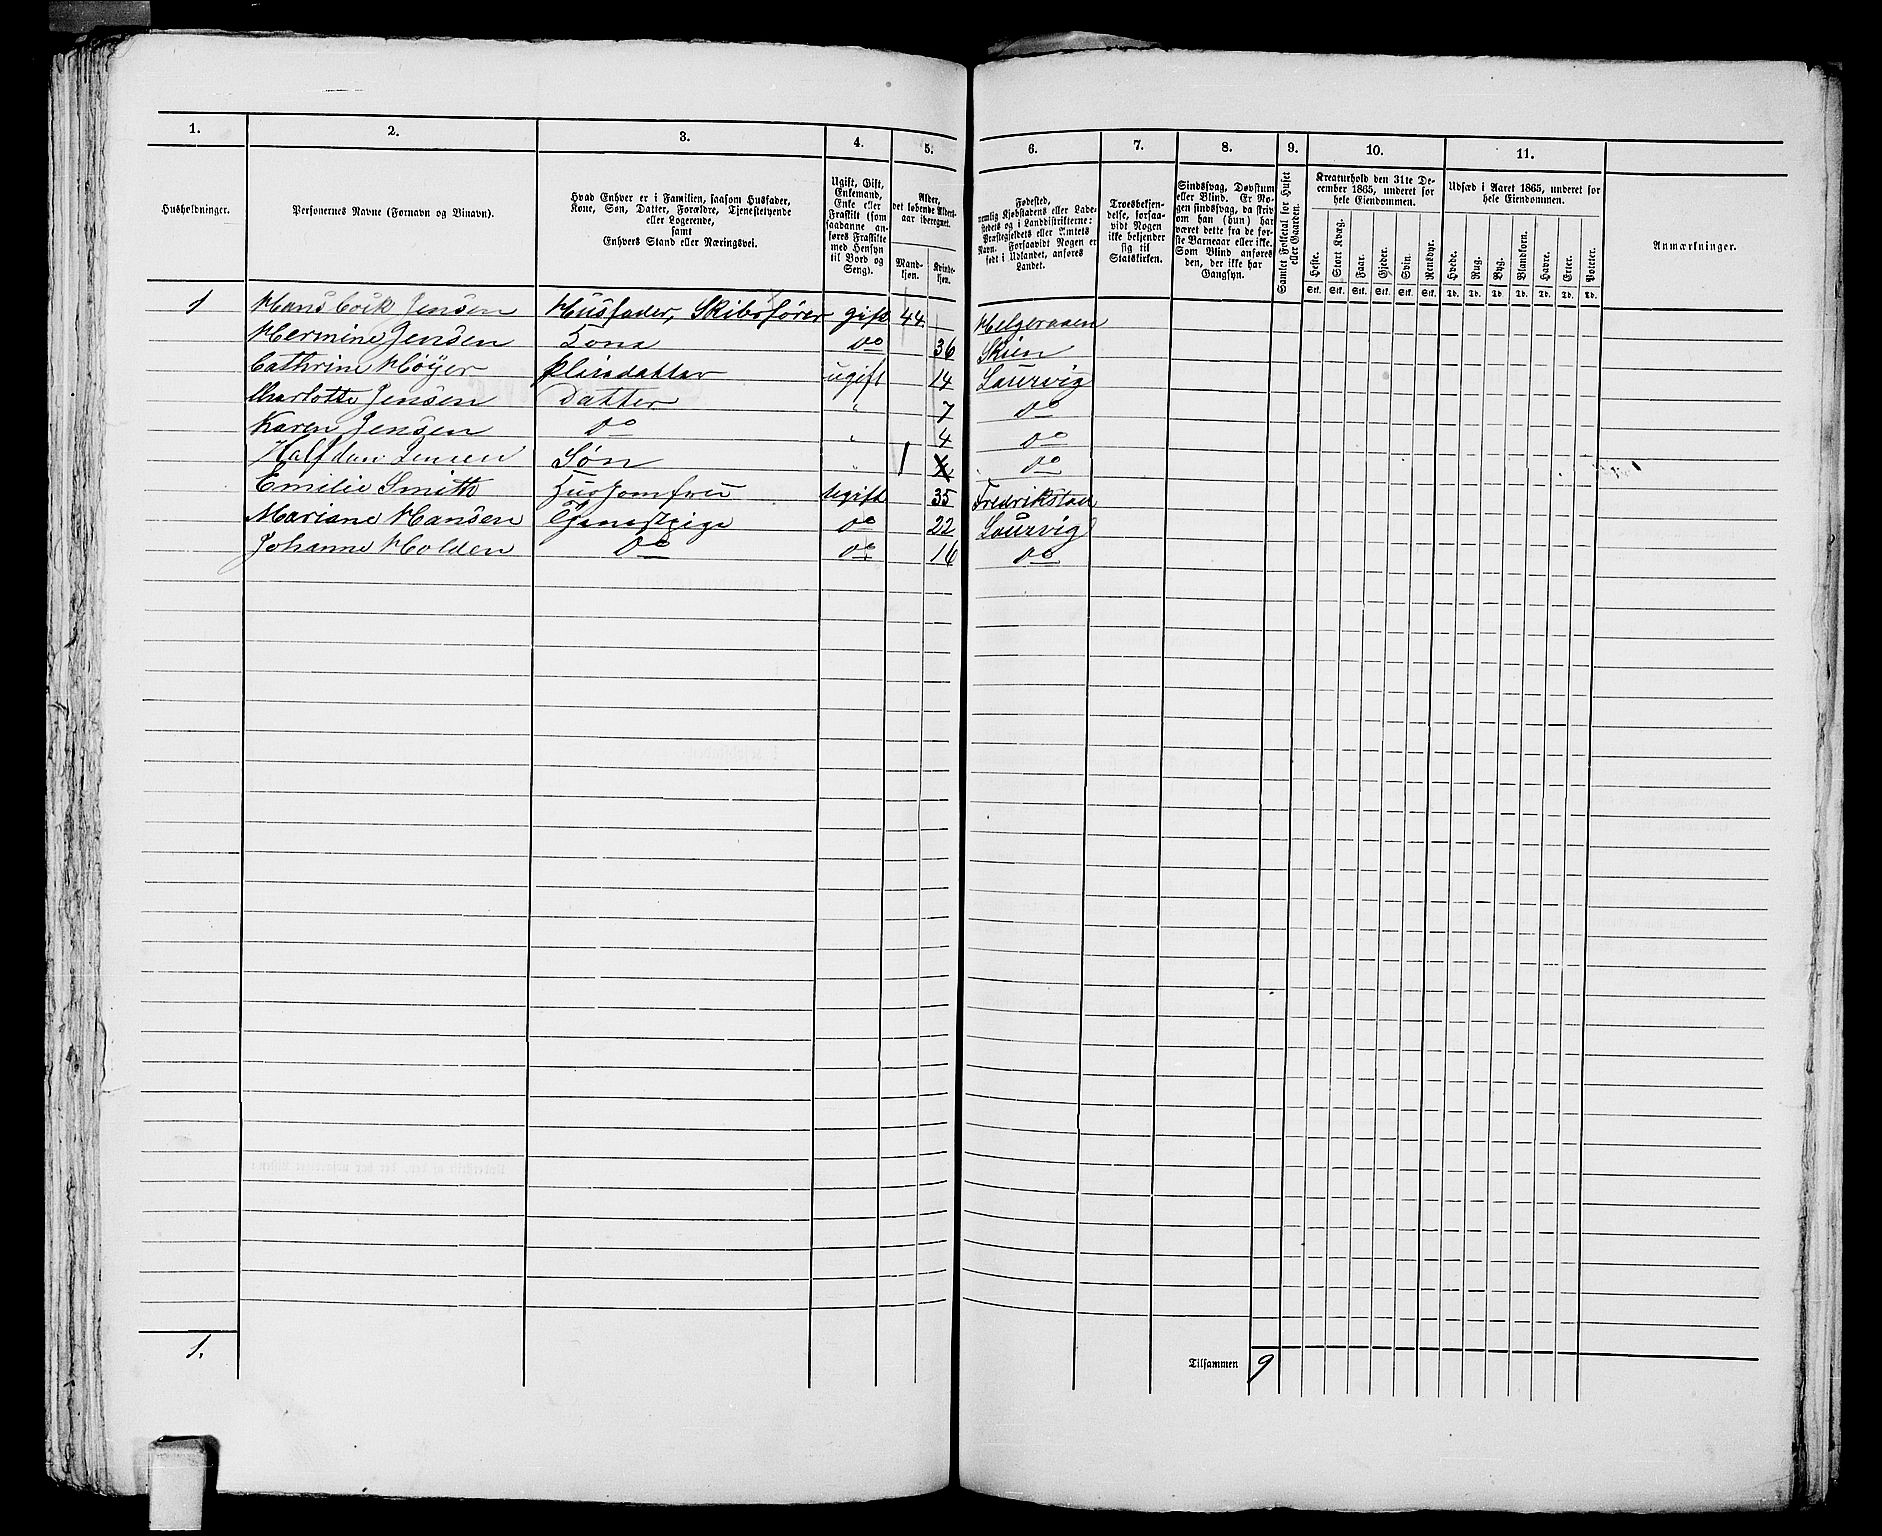 1. 2. 3. 4. 5. 6. 7. 8. 9. 10. 11.
Husholdninger.
Personernes Navne (Fornavn og Binavn).
Hvad Enhver er i Familien, saasom Husfader,
Kone, Søn, Datter, Forældre, Tjenestetyende
eller Logerende,
samt
Enhvers Stand eller Næringsvei.
Ugift, Gift,
Enkemand,
Enke eller
Fraskilt (som
saadanne an-
føres Fraskilte
med Hensyn
til Bord og
Seng).
Alder,
det løbende Alders-
aar iberegnet.
Mand-
kjøn.
Kvinde-
kjøn.
Fødested,
nemlig Kjøbstadens eller Lade-
stedets og i Landdistrikterne:
Præstegjeldets eller Amtets
Navn. Forsaavidt Nogen er
født i Udlandet, anføres
Landet.
Troesbekjen-
delse, forsaa-
vidt Nogen
ikke bekjender
sig til
Statskirken.
Sindssvag, Døvstum
eller Blind. Er No-
gen sindssvag, da skriv
om han (hun) har
været dette fra de før-
ste Barneaar eller ikke.
Som Blind anføres
den, der ikke har
Gangsyn.
Samlet Folketal for Huset
eller Gaarden.
Kreaturhold den 31te De-
cember 1865, underet for
hele Eiendommen.
Heste. Stort Kvæg. Faar. Gjeder. Svin. Rensdyr.
Stk. Stk. Stk. Stk. Stk. Stk.
Udsæd i Aaret 1865, underet for
hele Eiendommen.
Hvede. Rug. Byg. Blandkorn. Havre. Erter. Poteter.
Td. Td. Td. Td. Td. Td. Td.
Anmærkninger.
1 Hans Erik Jensen Husfader, Skibsfører gift 44 Helgeraaen
Hermine Jensen Kone do 36 Skien
Cathrine Høyer Pleiedatter ugift 14 Laurvig
Charlotte Jensen Datter " 7 do
Karen Jensen do " 4 do
Halfdan Jensen Søn " 1 do
Emilie Smith Husjomfru ugift 35 Fredrikstad
Mariane Hansen Tjenestpige do 22 Laurvig
Johanne Holden do do 16 do
1. Tilsammen 9